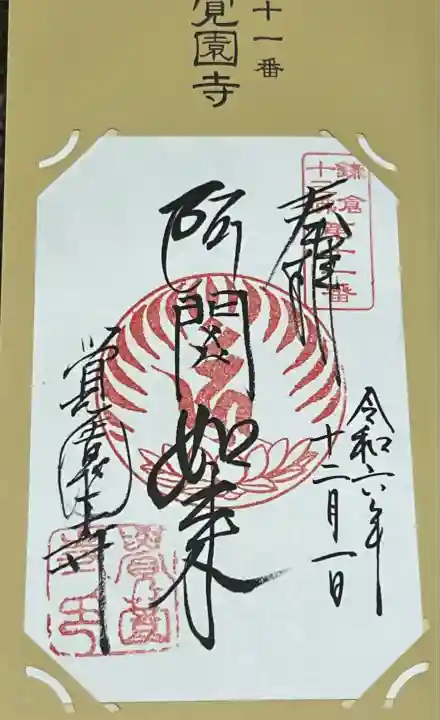 十一番
覚園寺
鎌倉
十三佛第十一番
奉拝
令和六年
十二月一日
阿閦如来
覚園寺